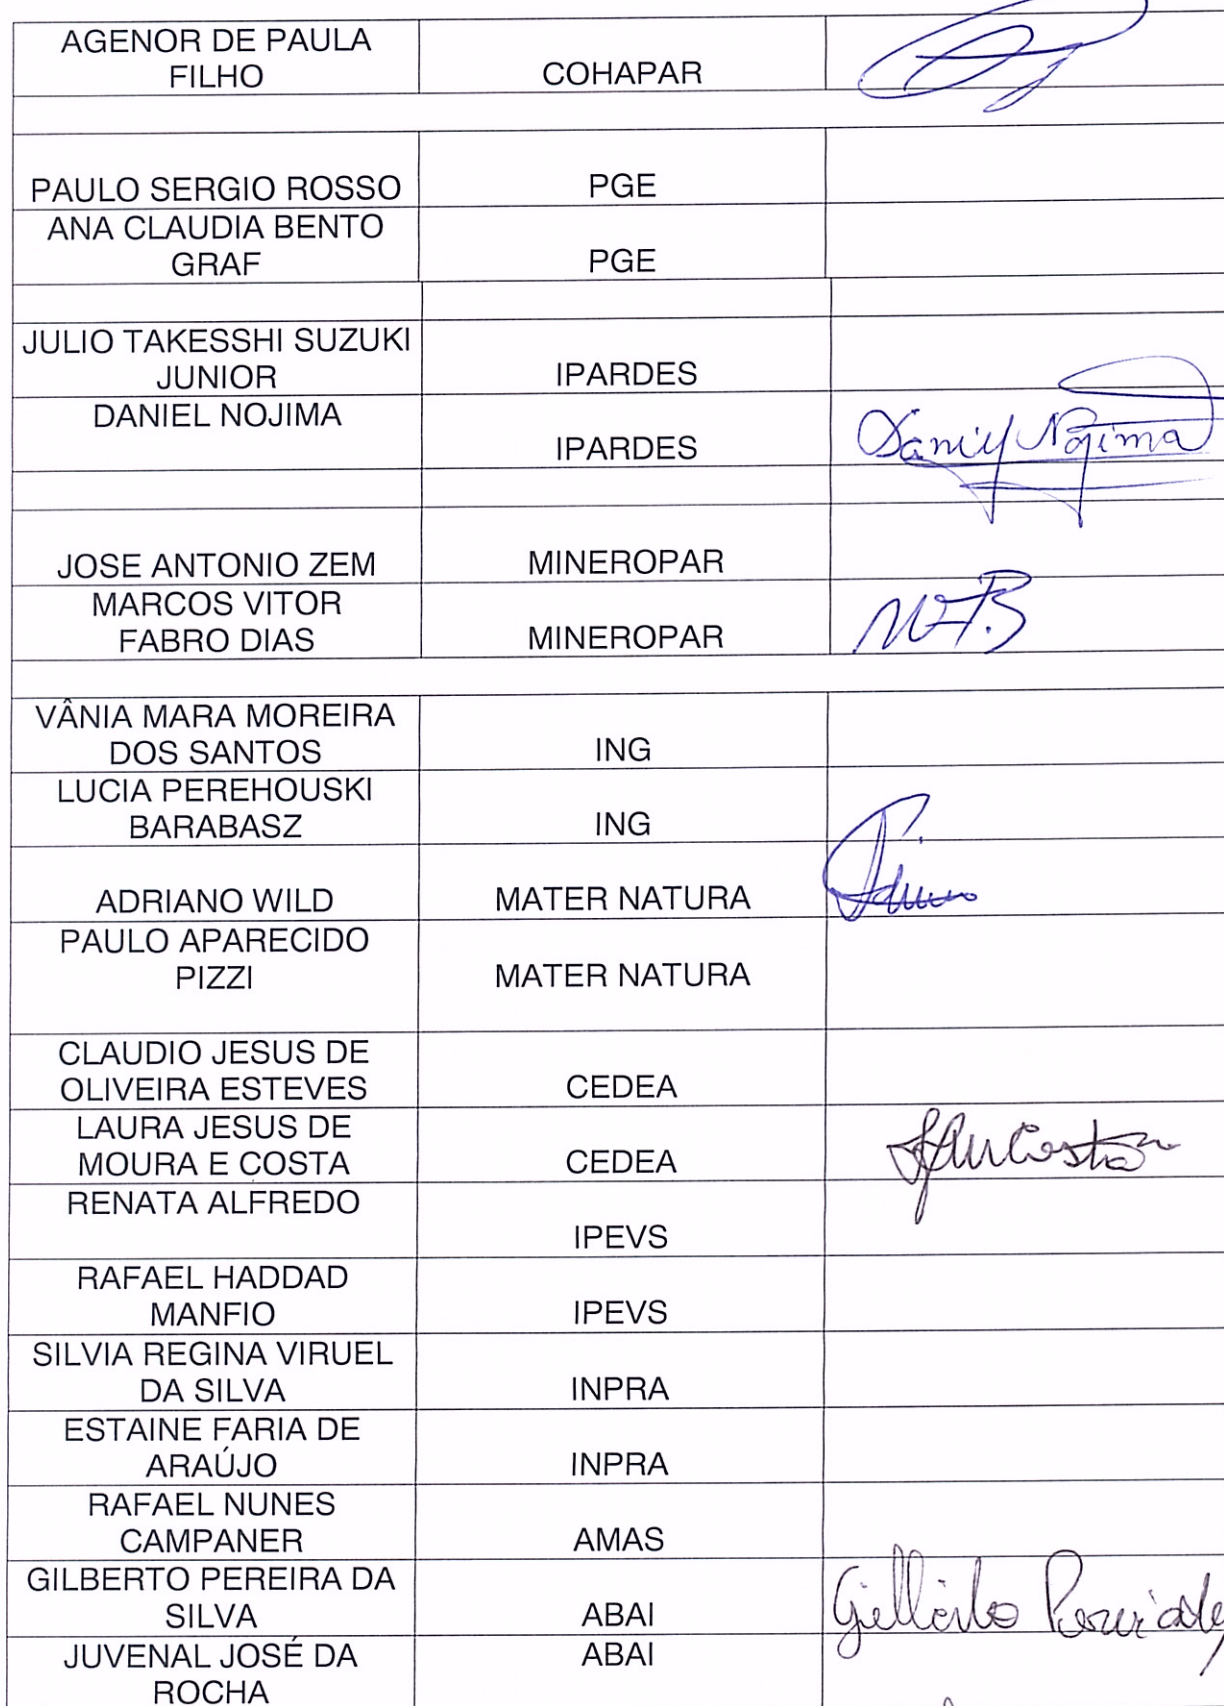 AGENOR DE PAULA
FILHO
COHAPAR
PAULO SERGIO ROSSO
PGE
ANA CLAUDIA BENTO
GRAF
PGE
JULIO TAKESSHI SUZUKI
JUNIOR
IPARDES
DANIEL NOJIMA
IPARDES
Daniel Nojima
JOSE ANTONIO ZEM
MINEROPAR
MARCOS VITOR
FABRO DIAS
MINEROPAR
VÂNIA MARA MOREIRA
DOS SANTOS
ING
LUCIA PEREHOUSKI
BARABASZ
ING
ADRIANO WILD
MATER NATURA
PAULO APARECIDO
PIZZI
MATER NATURA
CLAUDIO JESUS DE
OLIVEIRA ESTEVES
CEDEA
LAURA JESUS DE
MOURA E COSTA
CEDEA
RENATA ALFREDO
IPEVS
RAFAEL HADDAD
MANFIO
IPEVS
SILVIA REGINA VIRUEL
DA SILVA
INPRA
ESTAINE FARIA DE
ARAÚJO
INPRA
RAFAEL NUNES
CAMPANER
AMAS
GILBERTO PEREIRA DA
SILVA
ABAI
JUVENAL JOSÉ DA
ROCHA
ABAI